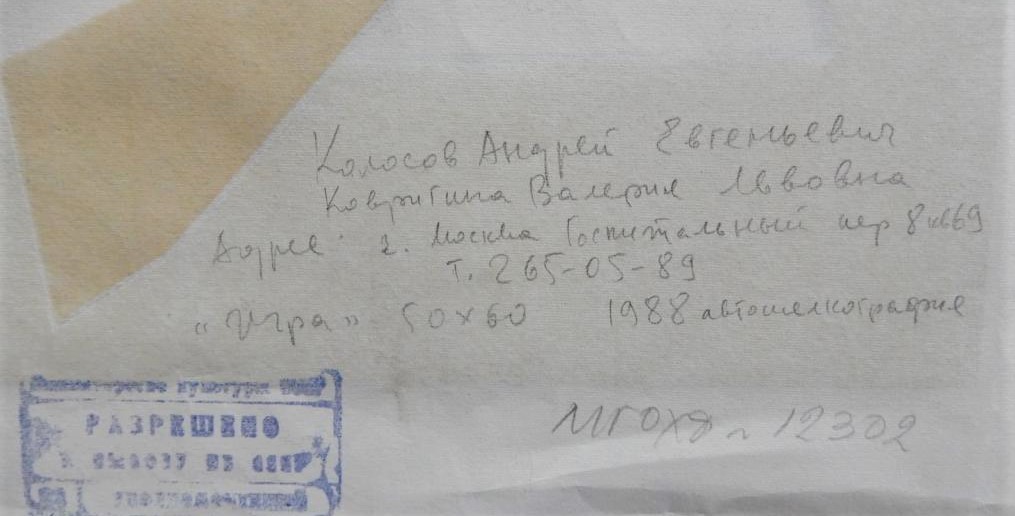 Колосов Андрей Евгеньевич
Ковригина Валерия Львовна
Адрес: г. Москва Госпитальный пер 8 кв69
т. 265-05-89
"Игра" 50х60 1988 автошелкография
12302
Министерство культуры СССР
РАЗРЕШЕНО
К ВЫВОЗУ ИЗ СССР